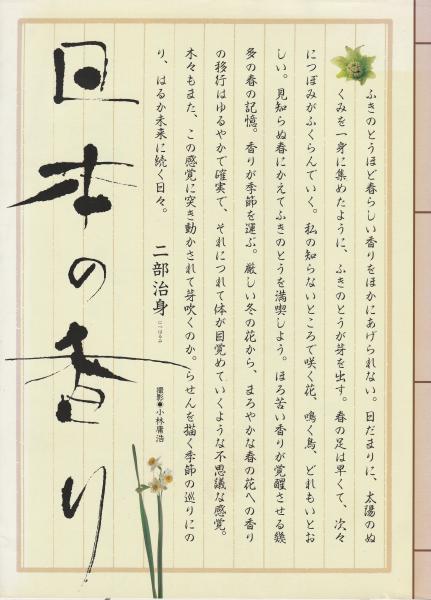 日本の香り
ふきのとうほど春らしい香りをほかにあげられない。日だまりに、太陽のぬ
くみを一身に集めたように、ふきのとうが芽を出す。春の足は早くて、次々
につぼみがふくらんでいく。私の知らないところで咲く花、鳴く鳥、どれもいとお
しい。見知らぬ春にかえてふきのとうを満喫しよう。ほろ苦い香りが覚醒させる幾
多の春の記憶。香りが季節を運ぶ。厳しい冬の花から、まろやかな春の花への香り
の移行はゆるやかで確実で、それにつれて体が目覚めていくような不思議な感覚。
木々もまた、この感覚に突き動かされて芽吹くのか。らせんを描く季節の巡りにの
り、はるか未来に続く日々。
二部治身
にべはるみ
撮影●小林庸浩